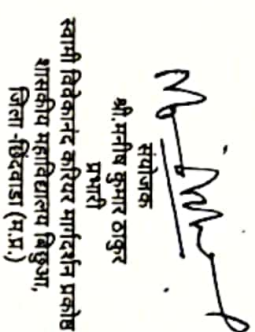 संयोजक
श्री.मनीष कुमार ठाकुर
प्रभारी
स्वामी विवेकानंद करियर मार्गदर्शन प्रकोष्ठ
शासकीय महाविद्यालय बिछुआ,
जिला -छिंदवाडा (म.प्र.)